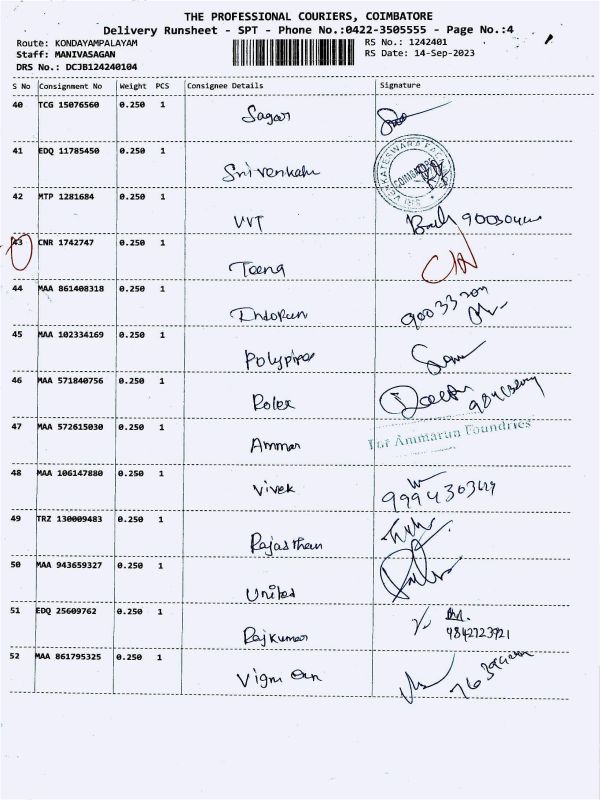 THE PROFESSIONAL COURIERS, COIMBATORE
Delivery Runsheet - SPT - Phone No.:0422-3505555 - Page No.:4
Route: KONDAYAMPALAYAM RS No.: 1242401
Staff: MANIVASAGAN RS Date: 14-Sep-2023
DRS No.: DCJB124240104
S No Consignment No Weight PCS Consignee Details Signature
40 TCG 15076560 0.250 1 Sagar
41 EDQ 11785450 0.250 1 Srivenkate
COIMBATORE
42 MTP 1281684 0.250 1 VVT
43 CNR 1742747 0.250 1 Teena
44 MAA 861408318 0.250 1
45 MAA 102334169 0.250 1 Polypipes
46 MAA 571840756 0.250 1 Rolex
47 MAA 572615030 0.250 1 Ammar
For Ammarun Foundries
48 MAA 106147880 0.250 1 Vivek
49 TRZ 130009483 0.250 1 Rajasthan
50 MAA 943659327 0.250 1 United
51 EDQ 25609762 0.250 1 Rajkumar 9842723921
52 MAA 861795325 0.250 1